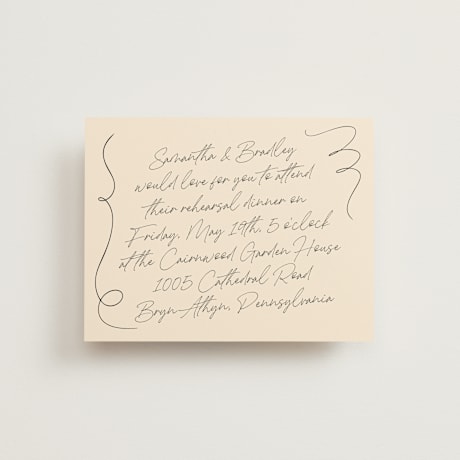 Samantha & Bradley
would love for you to attend
their rehearsal dinner on
Friday, May 19th, 5 o'clock
at the Cairnwood Garden House
1005 Cathedral Road
Bryn Athyn, Pennsylvania